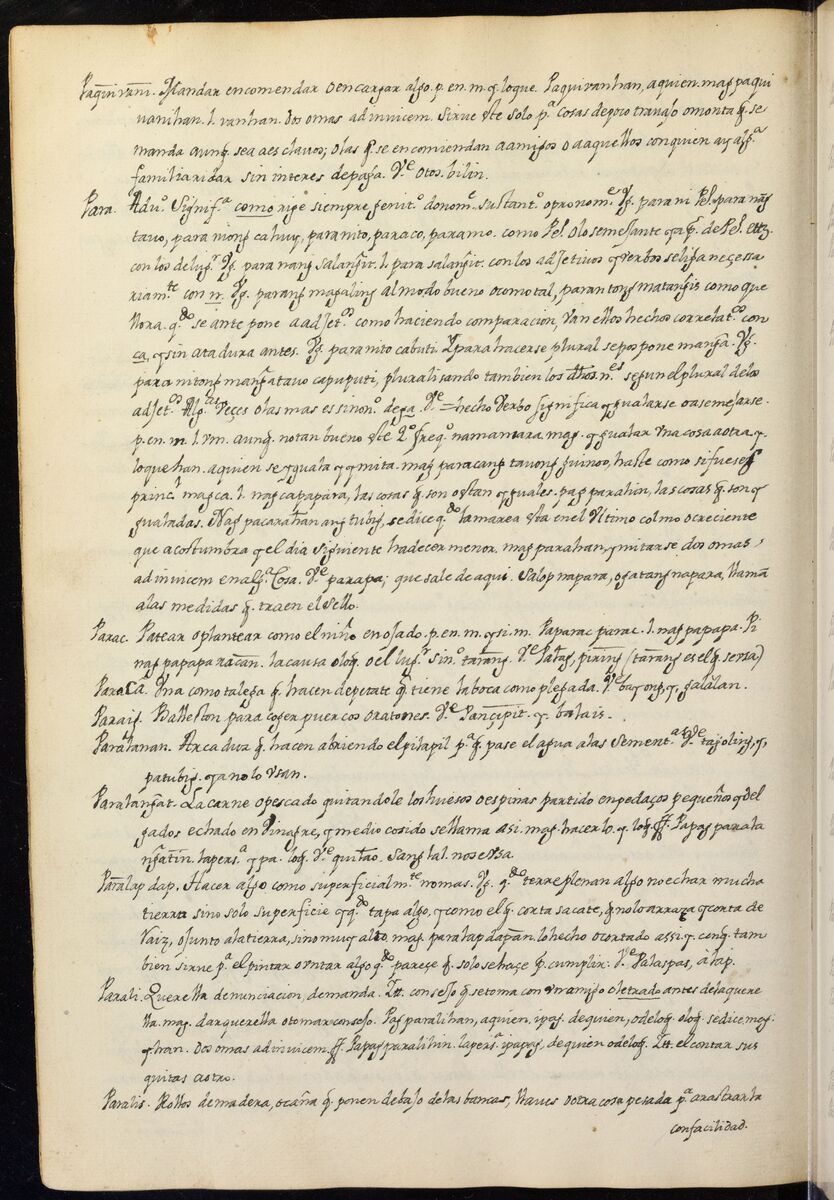 Paquivani. Mandar encomendar o encargar algo. p. en. m. y loque. Paquivanhan, aquien. mag paqui
vanihan. l. vanhan. Dos omas ad invicem. sirve este solo pª cosas depoco travajo omonta q̃. se
manda aunq̃. sea aesclavos; olas q̃. se encomiendan aamigos o aaquellos conquien ay algª
familiaridad sin interes depaga. Vᵉ otos. bilin.
Para. Aduº. Signifª como rige siempre genitº. donomᵉ. sustantº. opronomᵉˢ Vg. para ni Pel. para nang
tavo, para niong cahuy, paranito, paraco, paramo. como Pel. olosemejante
con los delugʳ Vg. para nang salangit. l. para salangit. con los adjetivos y verbos seliga necessa
riamᵗᵉ con n. Vg. parang magaling almodo bueno ocomotal, parantong matangis como que
llora. qᵈᵒ se ante pone a adjetᵒˢ como haciendo comparacion, van ellos hechos correlatᵒˢ con
ca, y sin atadura antes. Vg. paranito cabuti. Ypara hacerse plural sepospone manga. Vg.
para nitong manga tavo capuputi, pluralisando tambien los dhos. nᵉˢ segun elplural delos
adjetᵒˢ Algᵃˢ veçes olas mas es sinonº. dega. Vᵉ = hecho verbo significa ygualarse oasemejarse.
p. en. m. l. vm. aunq̃. notan bueno este 2º. freqº. namamara. mag. ygualar una cosa aotra y.
loquehan. aquien se yguala yymita. mag paracang tavong guinoo, haste como si fueses
princˡ. magca. l. nagcapapara, las cosas q̃. son o estan yguales. pag parahin, las cosas q̃. son y
gualadas. Nag pacarahan ang tubig, se dice qᵈᵒ la marea esta en el Ultimo colmo o creciente
que acostumbra y el dia siguiente hadecer menor. mag parahan, ymitarse dos omas,
ad invicem en algª Cosa. Vᵉ parapa; que sale de aqui. Salop napara, ogatang napara, llamã
alas medidas q̃. traen el sello.
Parac. Patear o plantear como el niñº enojado. p. en. m. y si. m. Paparac parac. l. nag papapa. Pi
nag papapa racan. la causa oloq̃. o el lugʳ. Sinº. tarang. Vᵉ Patag, piring (tarang es el q̃ se usa)
Paraca. Una como talega q̃. hacen depetate q̃ tiene laboca como plegada. Vᵉ bayong, y, galalan.
Paraig. Ballestон para coger puercos oratones. Vᵉ Pançipit. y balais.
Paralanan. Arcaduz q̃. hacen abriendo elpilapil pª q̃. pase el agua alas sementᵃˢ. Vᵉ tagoling, y,
patubig. ya no lo usan.
Paralangat. Lacarne opescado quitandole los huesos o espinas partido enpedaços pequeños y del
gados echado en Vinagre, ymedio cosido sellama asi. mag. hacerlo. y loq̃. Papag parala
ngatin. lapersª ypa. loq̃. Vᵉ quilao. Sanglal. nose usa.
Paralap dap. Hacer algo como superficialmᵗᵉ no mas. Vg. qᵈᵒ terreplenan algo no echar mucha
tierra sino solo superficie yqᵈᵒ tapa algo, y como el q̃. corta sacate, q̃ nolo arranca y corta de
Raiz, o junto alatierra, sino muy alto, mag. paralap dapan. lo hecho ocortado assi y. conq̃. tam
bien sirve pª el pintar o untar algo qᵈᵒ pareçe q̃. solo sehaçe p. cumplir: Vᵉ Palaspas, alap.
Parali. Querella denunciacion, demanda. Itt. consejo q̃. setoma con un amigo oletrado antes delaquere
lla. mag. dar querella otomar consejo. Pag paralihan, aquien. ipag. dequien, odeloq̃. oloq̃. sedice. mag.
yhan. Dos omas ad invicem. Papag paralihin. lapersª. ipapag, dequien odeloq̃. Itt. el contar sus
quitas aotro.
Paralis. Rollos demadera, ocaña q̃. ponen debajo delas bancas, llaves ootra cosa pesada pª arrastrarla
confacilidad.